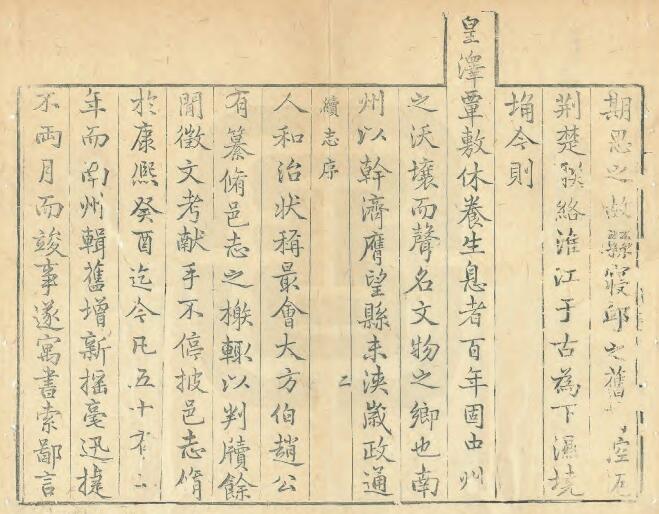 期思之故縣寑邱之舊
荆楚聨絡淮江于古為下濕墝
埆今則
皇澤覃敷休養生息者百年固中州
之沃壤而聲名文物之鄉也南
州以幹濟膺望縣未浹歲政通
續志序
二
人和治状稱最會大方伯趙公
有纂脩邑志之檄輙以判牘餘
閒徵文考献手不停披邑志脩
於康熈癸酉迄今凡五十有
年而南州輯舊增新揺毫迅捷
不兩月而竣事遂寓書索鄙言